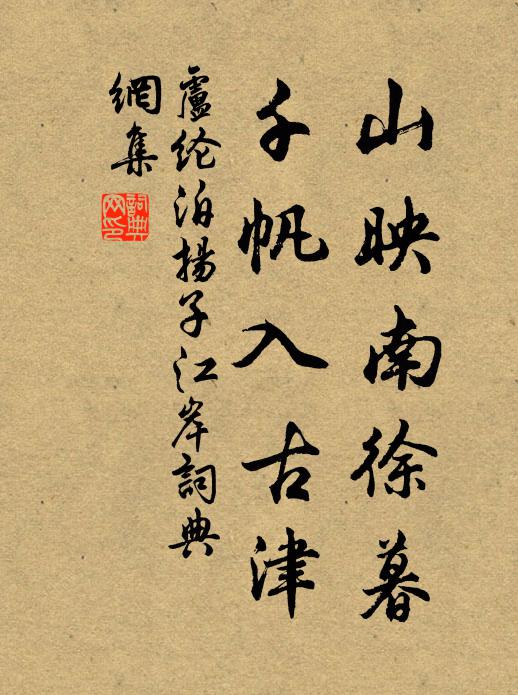 山映南徐暮
千帆入古津
盧纶泊揚子江岸詞典
網集
詞典
网印